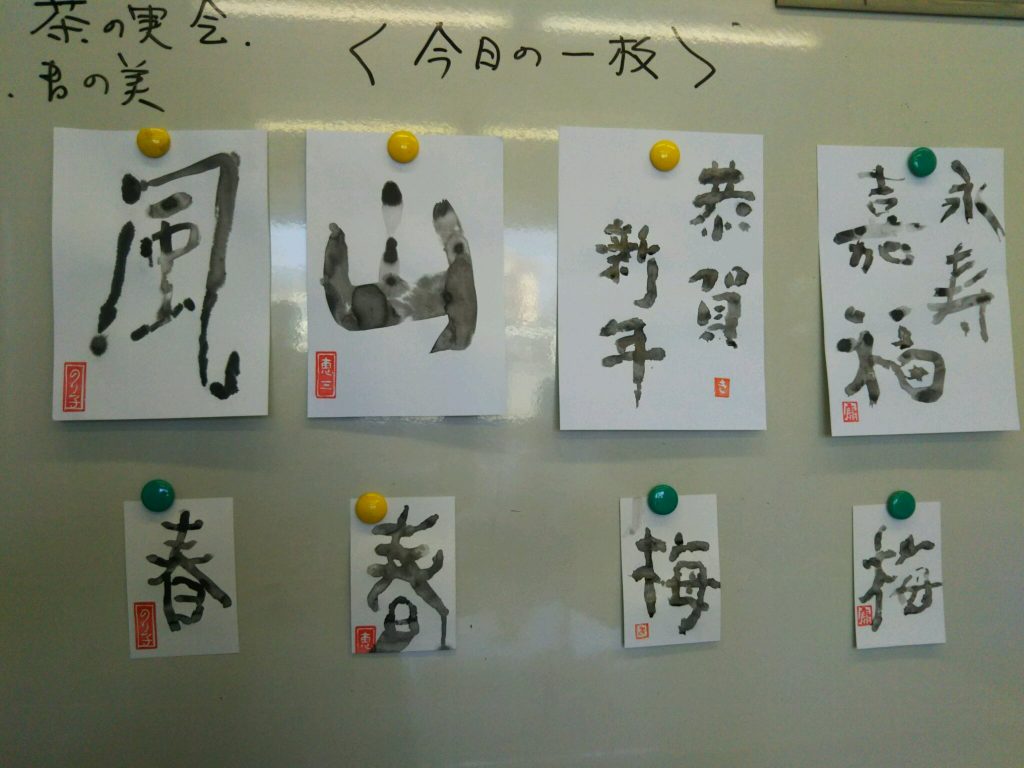 茶の実会.
の美
〈今日の一枚〉
風
のり子
山
恵三
恭賀
新年
き
永寿
嘉福
春
のり子
春
恵
梅
き
梅